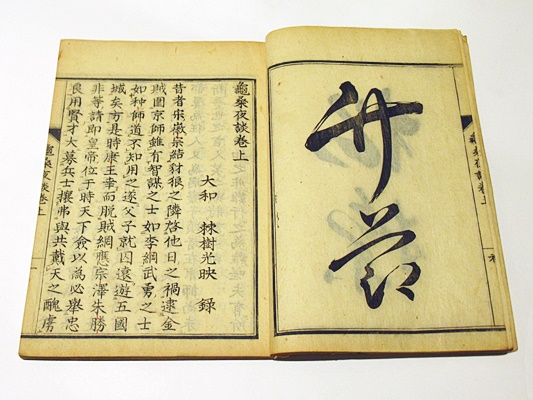 龜桑夜談卷上
大和 棘樹光映 錄
昔者宋徽宗結豺狼之隣啓他日之禍逮金
賊圍京師雖有智謀之士如李綱武勇之士
如种師道不知用之遂父子就囚遠遊五國
城矣方是時康王幸而脫賊網應宗澤朱勝
非等請即皇帝位于時天下僉以為必舉忠
良用賢才大募兵士攘弗與共戴天之醜虜
龜桑夜談卷上